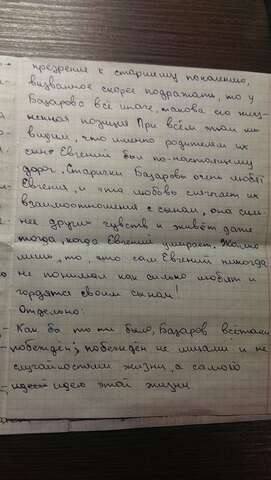 презрения к старшему поколению,
вызванное скорее подражать, то у
Базарова всё иначе, такова его жиз-
ненная позиция При всём этом мы
видим, что именно родителям их
сын Евгений был по-настоящему
дорог. Старички Базаровы очень любят
Евгения, и эта любовь смягчает их
взаимоотношения с сыном, она силь-
нее других чувств и живёт даже
тогда, когда Евгений умирает. Жалко
лишь, то, что сам Евгений никогда
не понимал как сильно любят и
гордятся своим сыном!
Отдельно:
Как бы то ни было, Базаров всё таки
побеждён; побеждён не лицами и не
случайностями жизни, а самого
идеей этой жизни